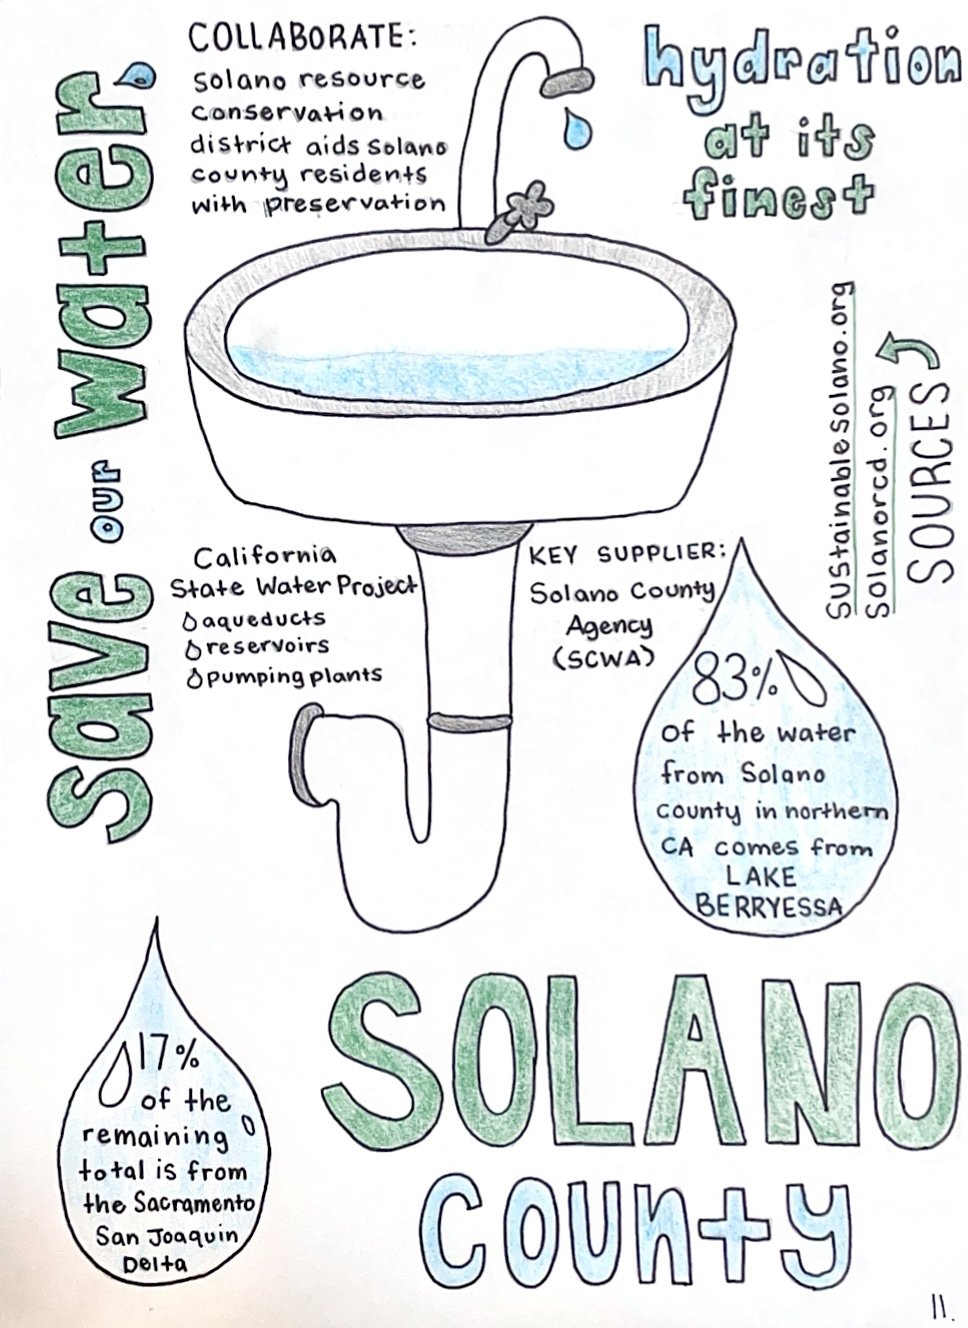 COLLABORATE:
solano resource
conservation
district aids solano
county residents
with preservation
hydration
at its
finest
save our water
sustainablesolano.org
Solanorcd.org
SOURCES
California
State Water Project
aqueducts
reservoirs
pumping plants
KEY SUPPLIER:
Solano County
Agency
(SCWA)
83%
of the water
from Solano
county in northern
CA comes from
LAKE
BERRYESSA
17%
of the
remaining
total is from
the Sacramento
San Joaquin
Delta
SOLANO
County
11.